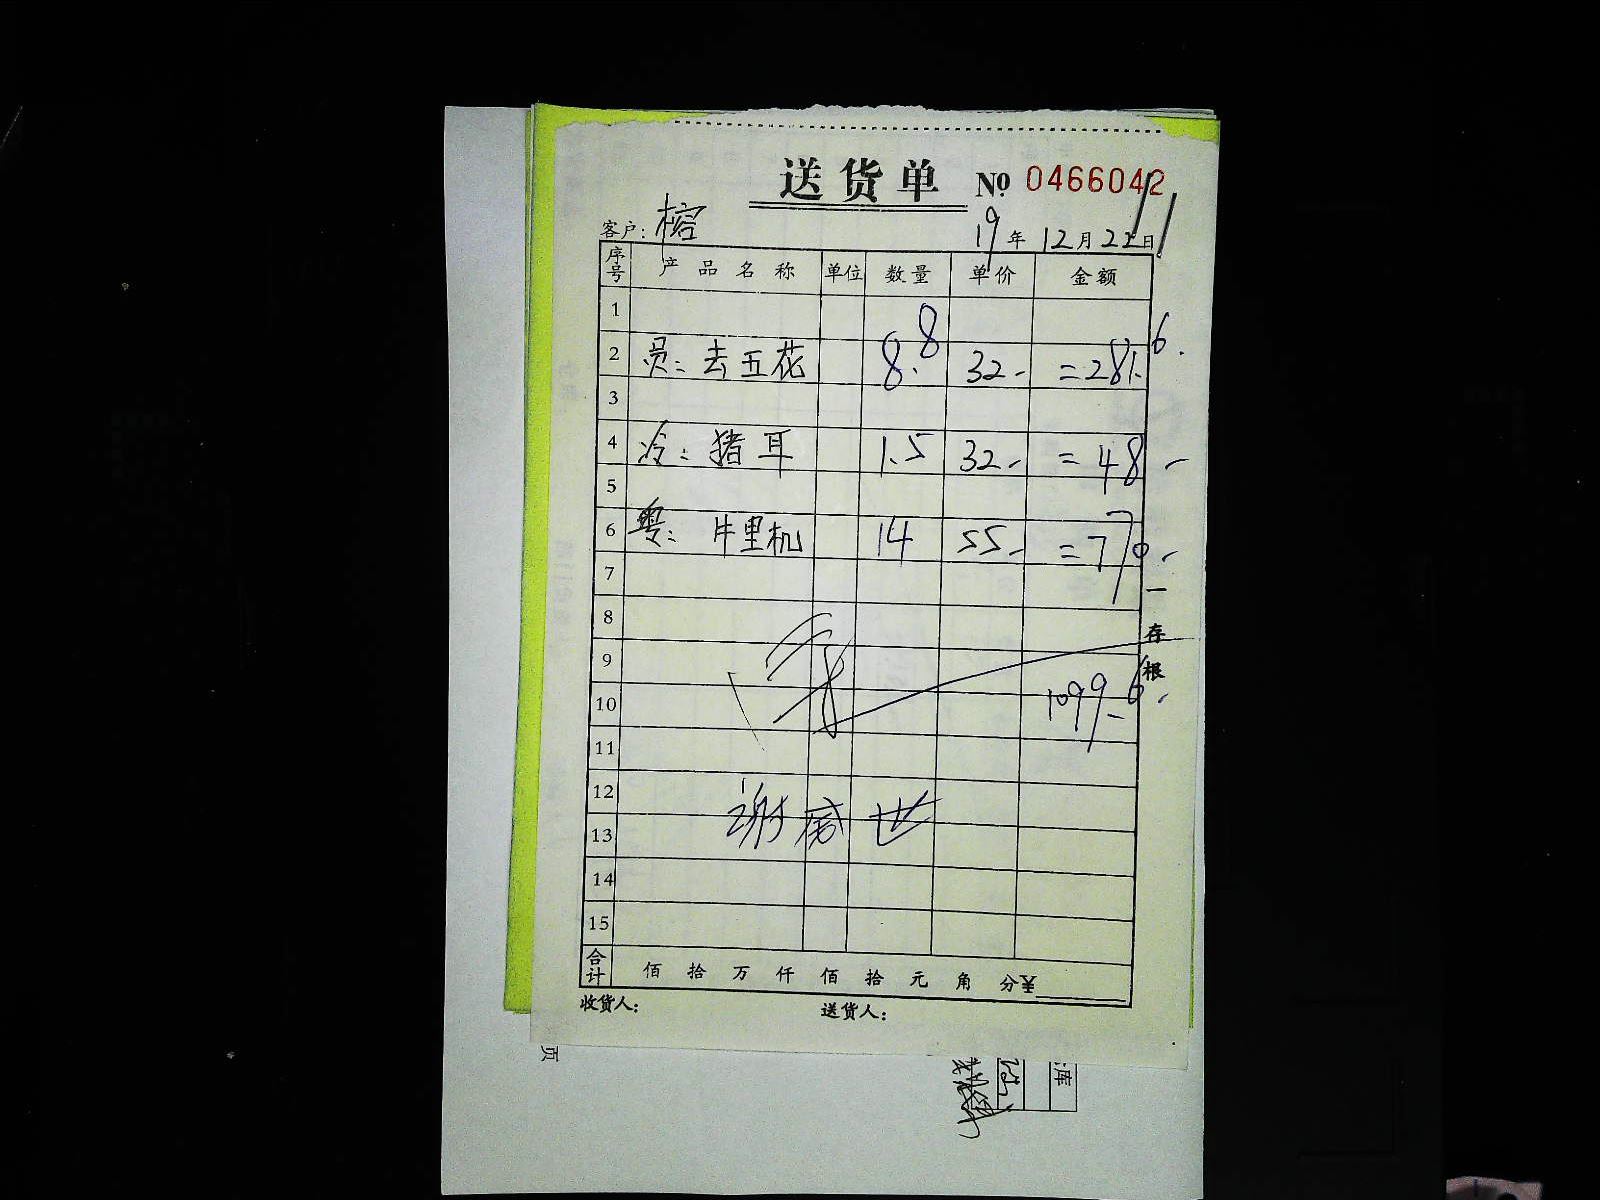 送货单 № 0466042
客户: 榕 19年12月22日
序号 产品名称 单位 数量 单价 金额
1
2 员: 去五花 8.8 32- =281.6.
3
4 冷: 猪耳 1.5 32- =48-
5
6 粤: 牛里机 14 55- =770-
7
一存根
8
9
10 1099.6.
11
12
13 谢盛世
14
15
合计 佰拾万仟佰拾元角分¥
收货人: 送货人:
页
库